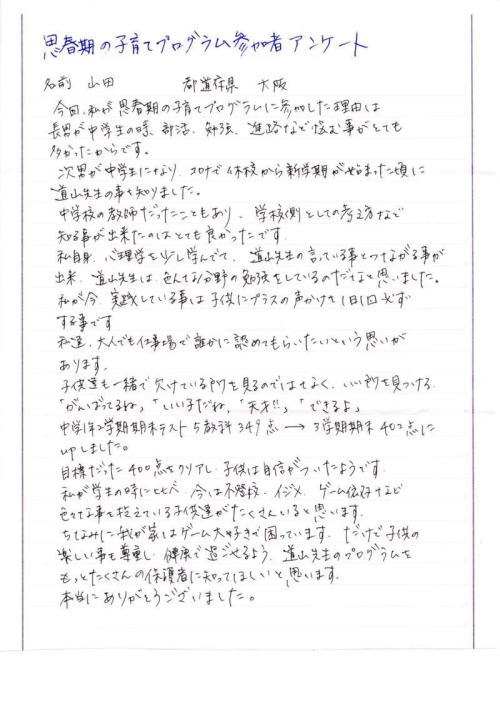 思春期の子育てプログラム参加者アンケート
名前 山田 都道府県 大阪
今回、私が思春期の子育てプログラムに参加した理由は
長男が中学生の時、部活、勉強、進路など悩む事がとても
多かったからです。
次男が中学生になり、コロナで休校から新学期が始まった頃に
道山先生の事を知りました。
中学校の教師だったこともあり、学校側としての考え方など
知る事が出来たのはとても良かったです。
私自身、心理学を少し学んでて、道山先生の言っている事とつながる事が
出来、道山先生は色んな分野の勉強をしているのだなと思いました。
私が今、実践している事は子供にプラスの声かけを1日1回必ず
する事です
私達、大人でも仕事場で誰かに認めてもらいたいという思いが
あります。
子供達も一緒で欠けている所を見るのではなく、いい所を見つける。
「がんばってるね」「いい子だね」「天才!!」「できるよ」
中学1年2学期期末テスト5教科349点→3学期期末402点に
upしました。
目標だった400点をクリアし、子供は自信がついたようです。
私が学生の時に比べ、今は不登校、イジメ、ゲーム依存など
色々な事を抱えている子供達がたくさんいると思います。
ちなみに我が家はゲーム大好きで困っています。だけど子供の
楽しい事も尊重し、健康で過ごせるよう、道山先生のプログラムを
もっとたくさんの保護者に知ってほしいと思います。
本当にありがとうございました。